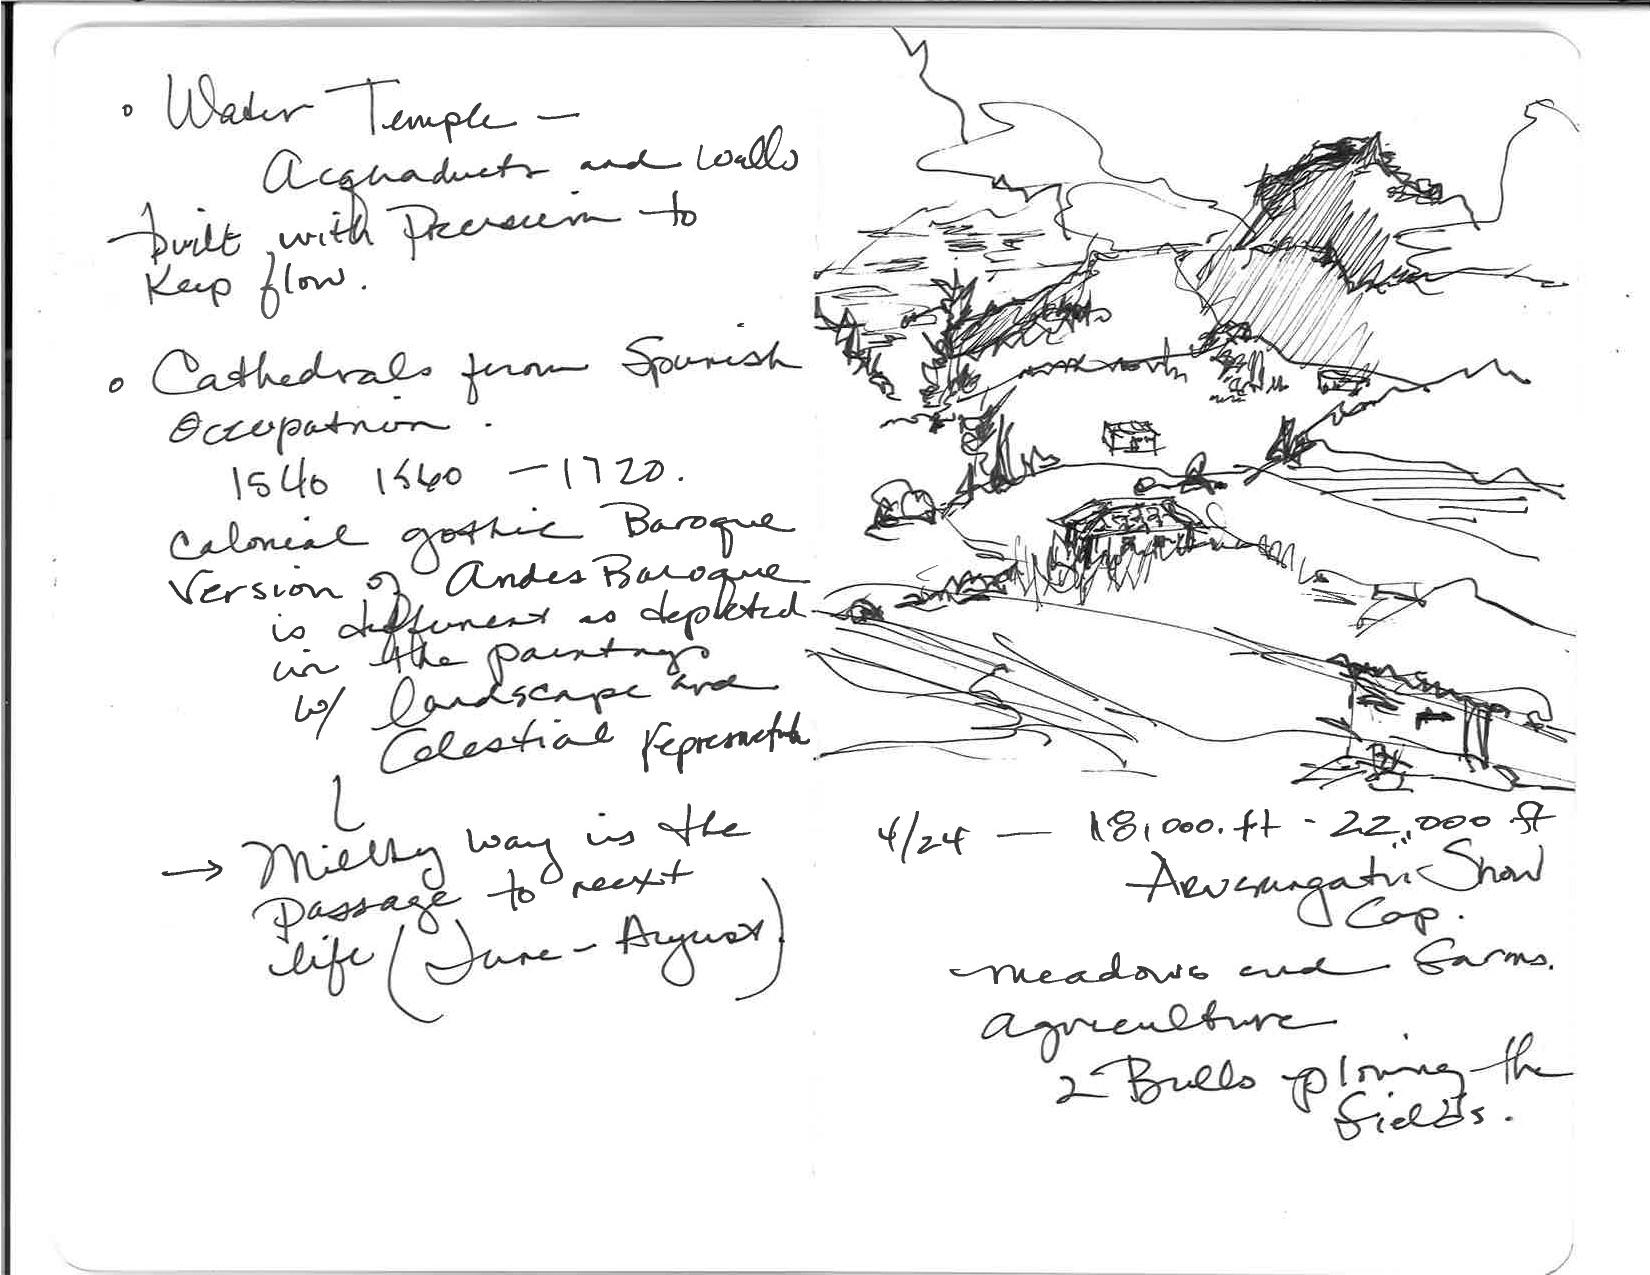 Water Temple —
Acquaducts and walls
built with Precision to
Keep flow.
Cathedrals from Spanish
Occupation.
1540 1560 — 1720.
Colonial gothic Baroque
Version of Andes Baroque
is different as depicted
in the paintings
w/ landscape and
Celestial
→ Milky way is the
passage to next
life (June - August)
4/24 — 18,000. ft - 22,000 ft
Snow
Cap.
meadows and farms.
agriculture
2 Bulls plowing the
fields.